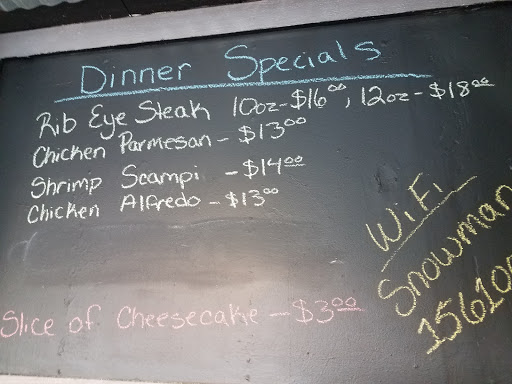 Dinner Specials
Rib Eye Steak 10oz-$16.00, 12oz-$18.00
Chicken Parmesan - $13.00
Shrimp Scampi - $14.00
Chicken Alfredo - $13.00
Slice of Cheesecake - $3.00
WiFi
Snowman